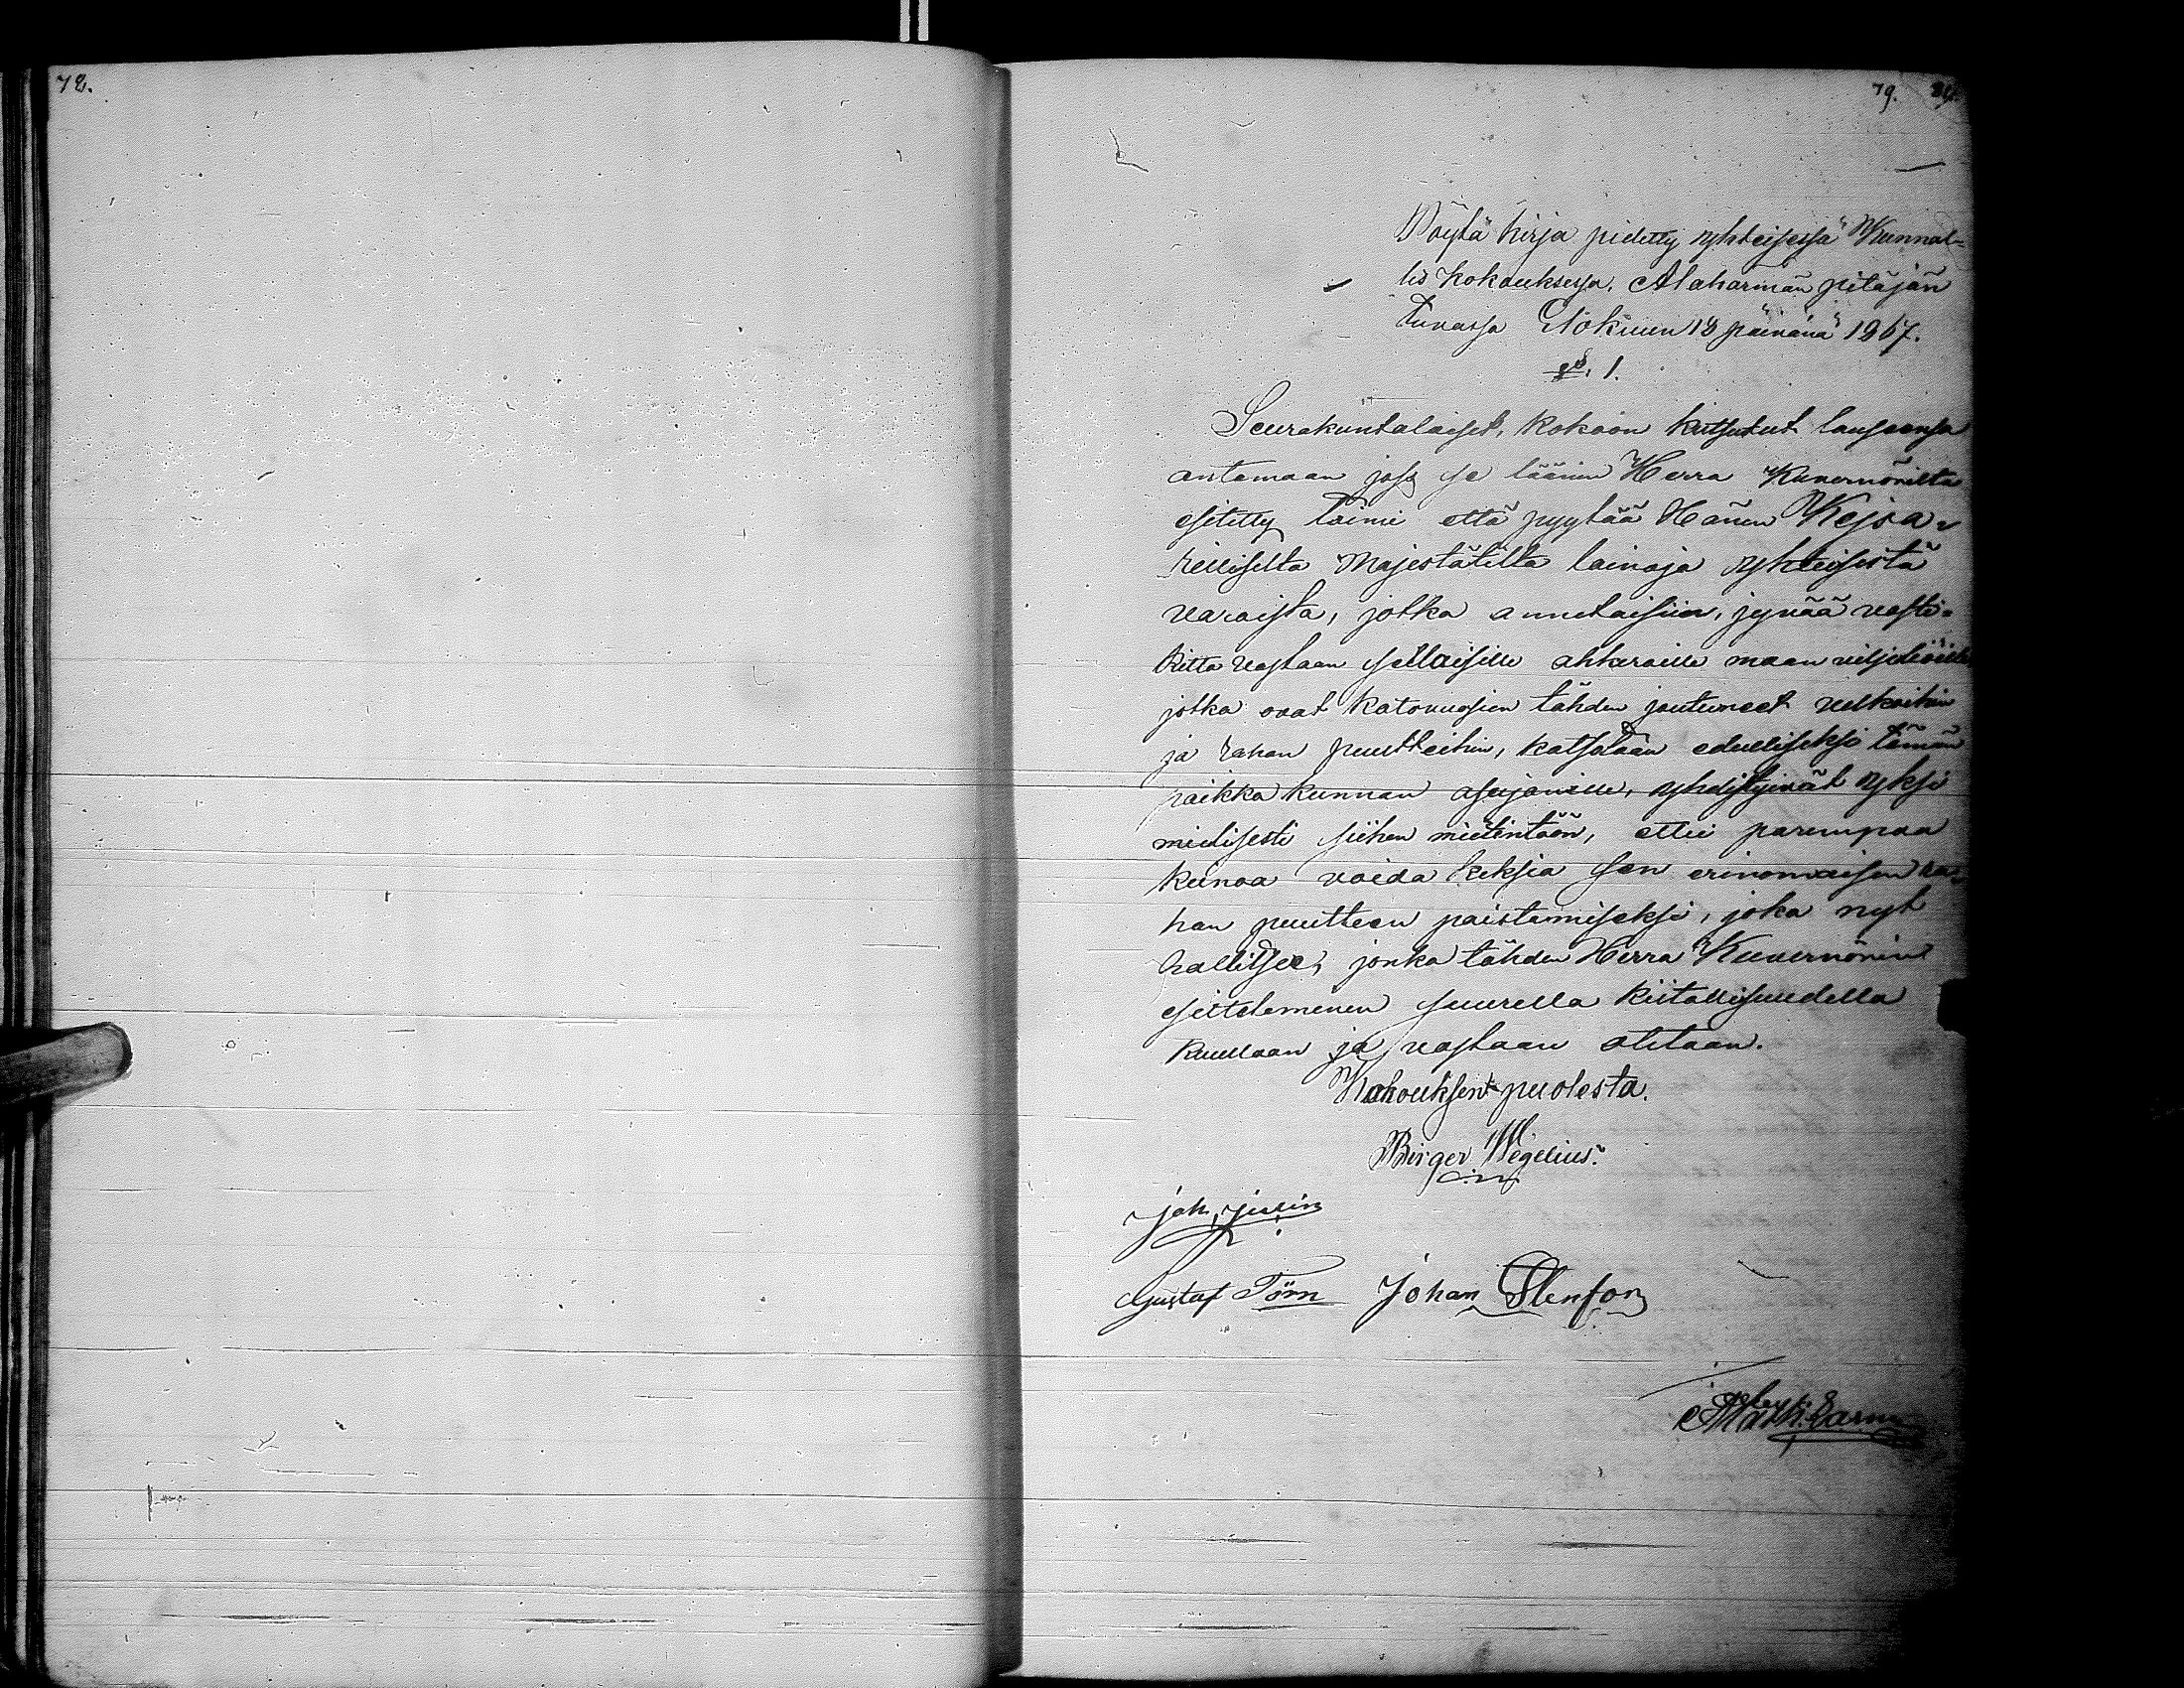 78.
79.
Pöytä kirja pidetty yhteisessä Kunnal=
lis kokouksessa, Alahärmän pitäjän
tuvassa Elokuun 18 päivänä 1867.
§. 1.
Seurakuntalaiset, kokoon kutsutut lausensa
antamaan joss se läänin Herra Kuvernöriltä
esitetty toimi että pyytää Hänen Kejsa=
rilliselta Majestätiltä lainoja yhteisistä
varoista, jotka annetaisiin, jyvää vasti=
kitta vastaan sellaisille ahkeraille maan viljeliöille
jotka ovat katovuosien tähden joutuneet velkoihin
ja rahan puutteihin, katsotaan edulliseksi tämän
paikka kunnan asujamille, yhdistyivät yksi
mielisesti siihen mietintöön, ettei parempaa
keinoa voida keksiä sen erinomaisen ra=
han puutteen poistamiseksi, joka nyt
hallitsee, jonka tähden Herra Kuvernörin
esitteleminen suurella kiitollisuudella
kuullaan ja vastaan otetaan.
Kokouksen puolesta.
Birger Wegelius.
Joh, Jussin
Gustaf Törn Johan Stenfors
Matth: